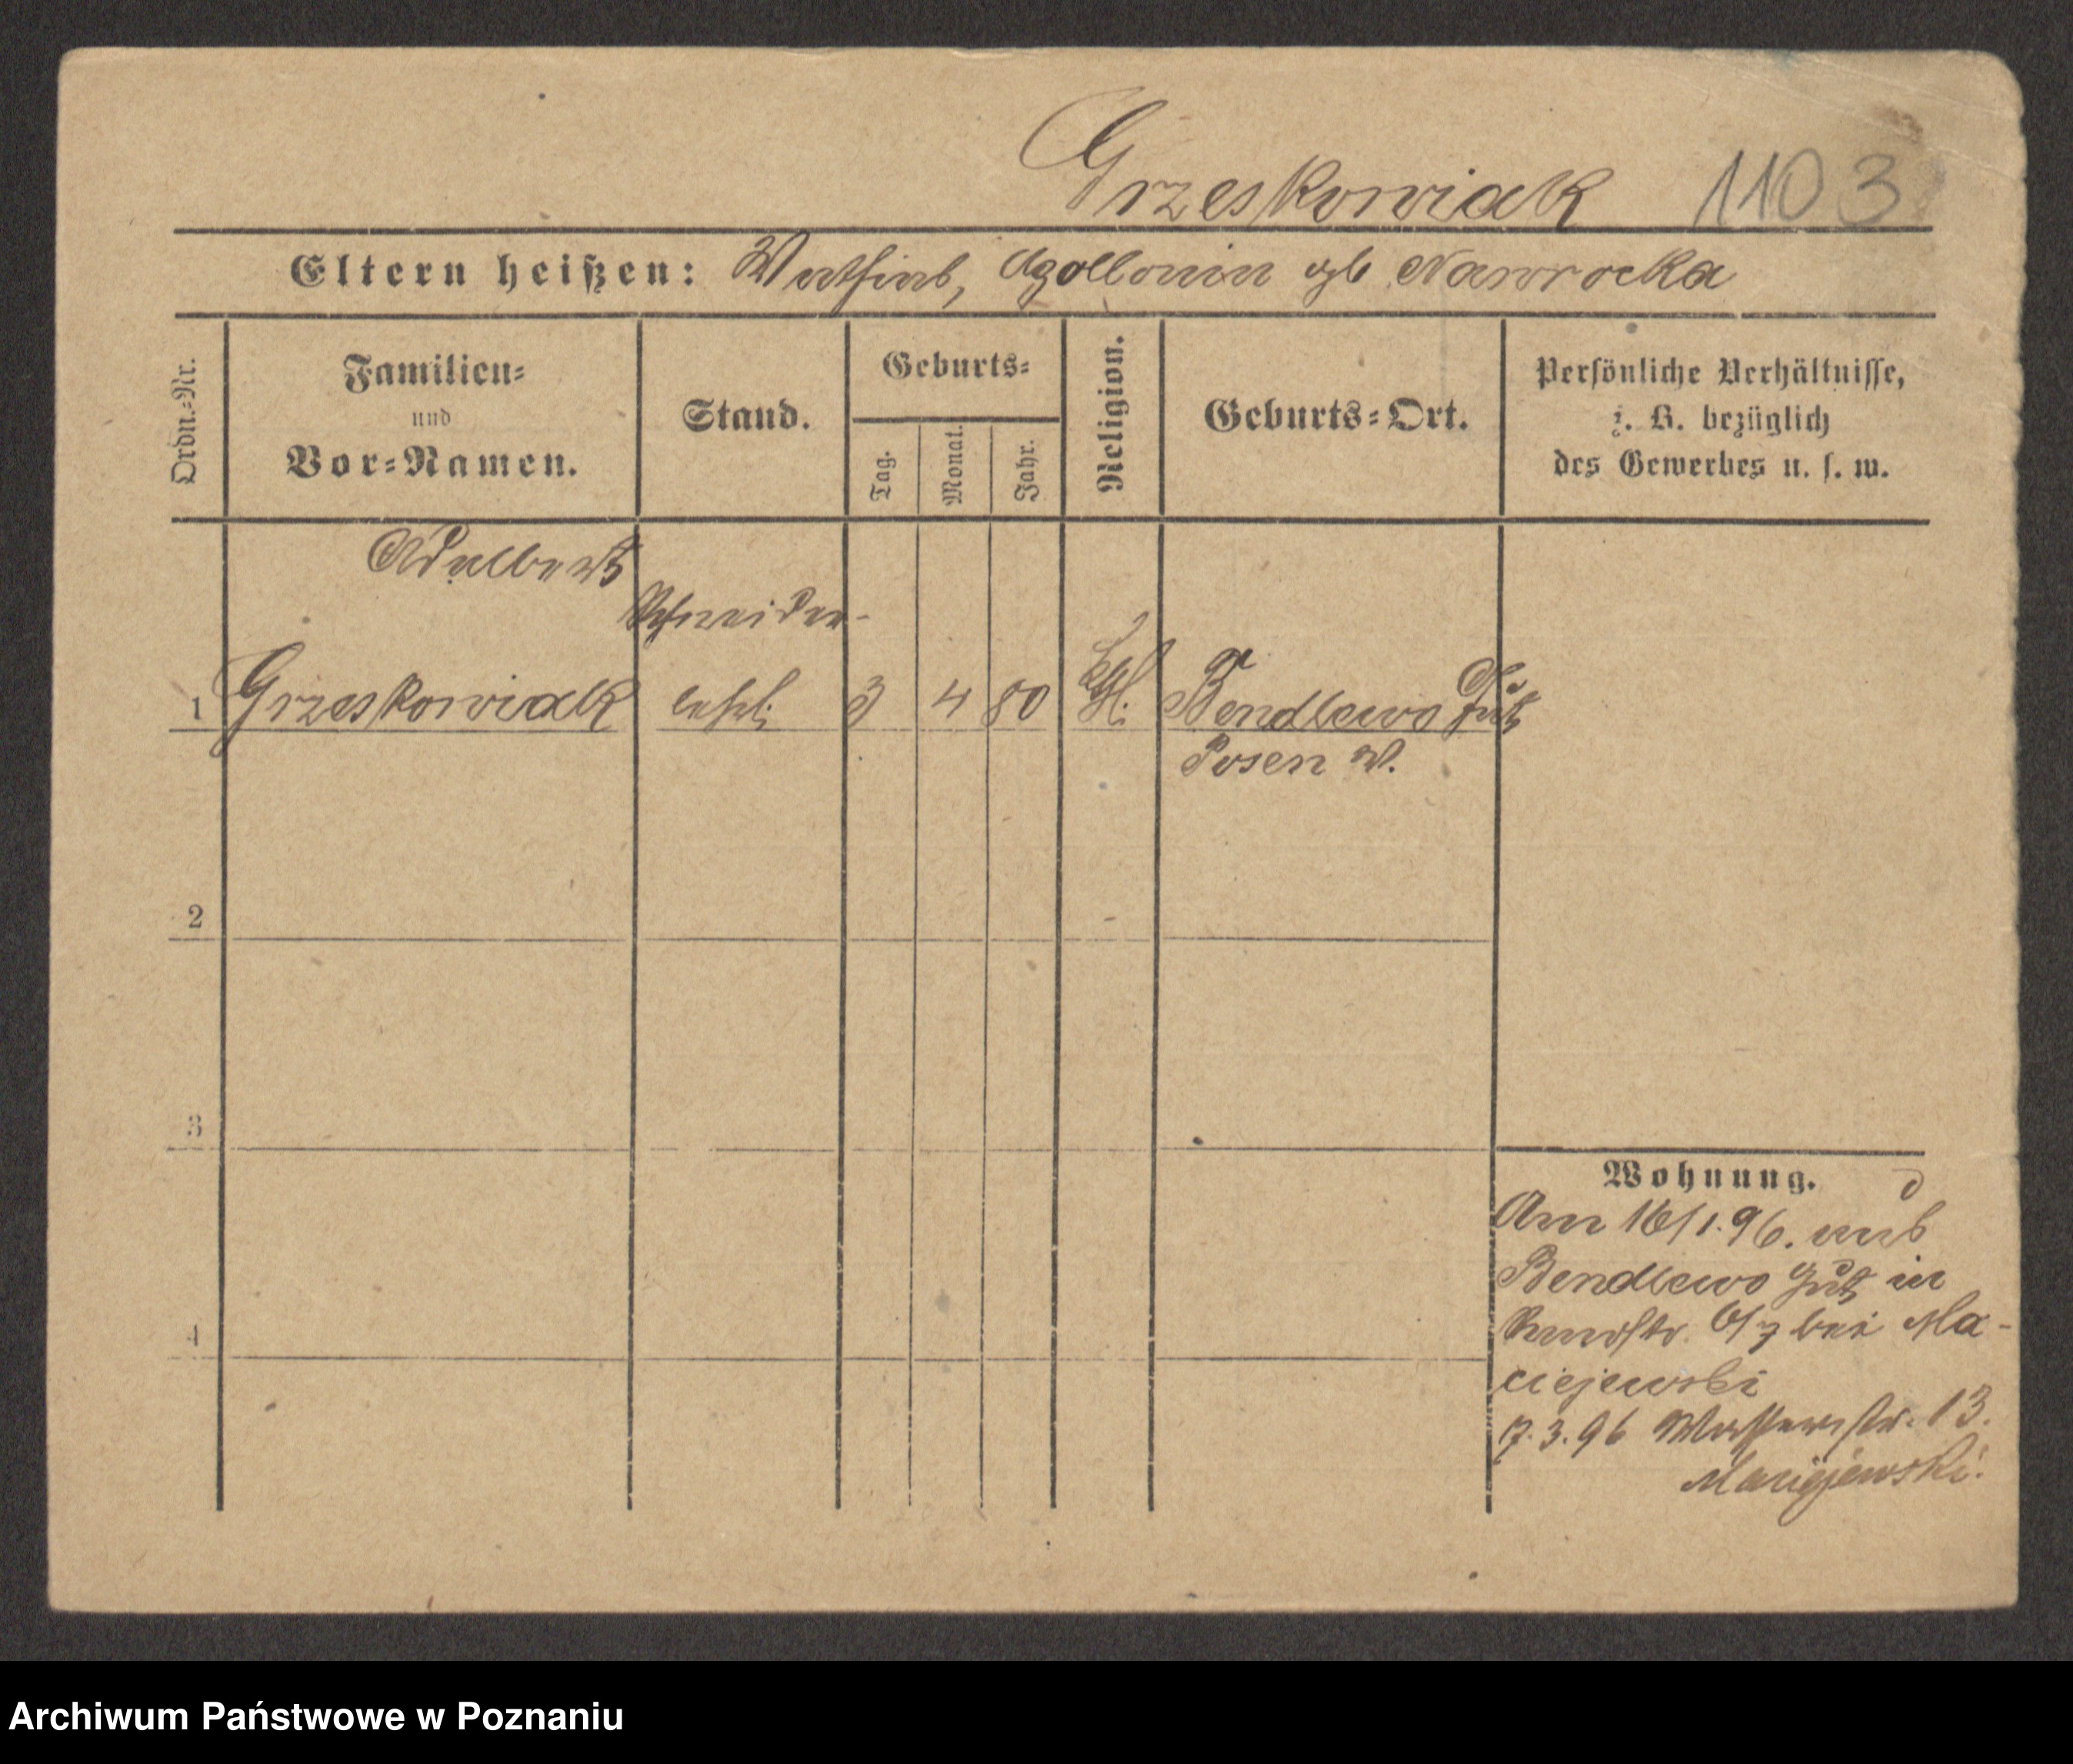 Grzeskowiak 1103
Eltern heißen: Mathias, Apollonia geb Nawrocka
Ordn.-Nr.
Familien-
und
Vor-Namen.
Stand.
Geburts-
Tag.
Monat.
Jahr.
Religion.
Geburts-Ort.
Persönliche Verhältnisse,
z. B. bezüglich
des Gewerbes u. s. w.
Adalbert
Schneider-
1 Grzeskowiak lehrl. 3 4 80 kth. Bendlewo Gut
Posen W.
2
3
4
Wohnung.
Am 16/1.96. aus
Bendlewo Gut in
6/7 bei Ma-
ciejewski
7.3.96 Wasserstr. 13.
Maciejewski.
Archiwum Państwowe w Poznaniu